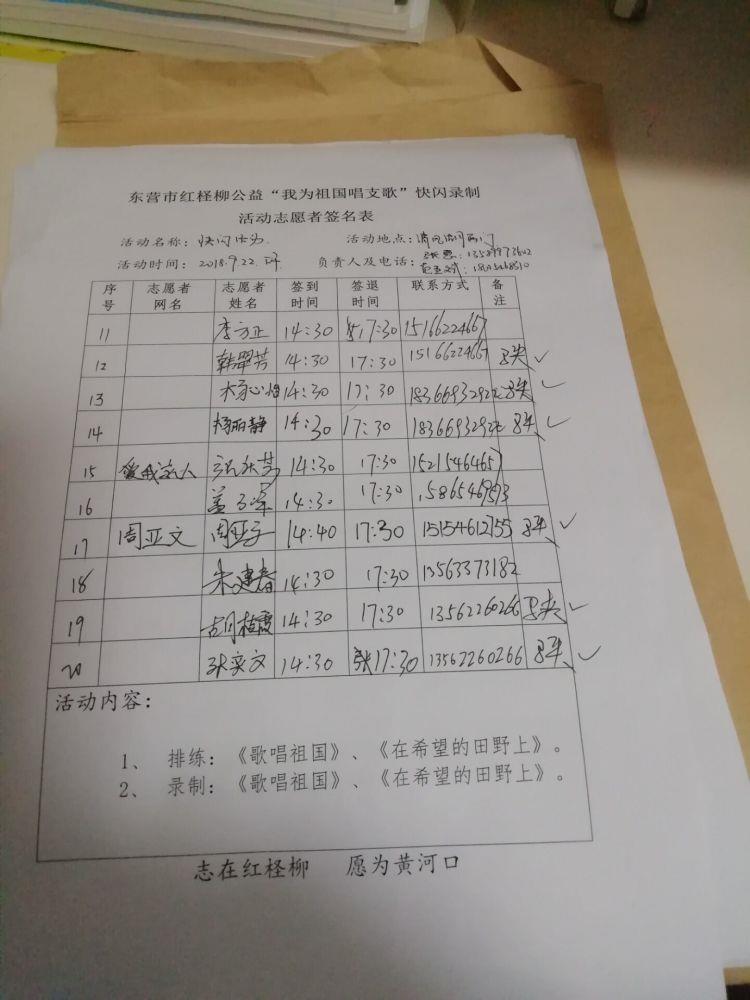 东营市红柽柳公益“我为祖国唱支歌”快闪录制
活动志愿者签名表
活动名称：快闪
活动地点：
活动时间：2018.9.22.
负责人及电话：
序号 志愿者网名 志愿者姓名 签到时间 签退时间 联系方式 备注
11 李方正 14:30 17:30 15166224667
12 韩翠芳 14:30 17:30 15166224667 马夹 ✓
13 14:30 17:30 马夹 ✓
14 杨丽静 14:30 17:30 马夹 ✓
15 爱我家人 14:30 17:30 15215464657
16 14:30 17:30
17 周亚文 周亚文 14:40 17:30 15154612755 马夹 ✓
18 朱建春 14:30 17:30 13563373182
19 胡桂霞 14:30 17:30 13562260266 马夹 ✓
20 张奕文 14:30 17:30 13562260266 马夹 ✓
活动内容：
1、 排练：《歌唱祖国》、《在希望的田野上》。
2、 录制：《歌唱祖国》、《在希望的田野上》。
志在红柽柳 愿为黄河口